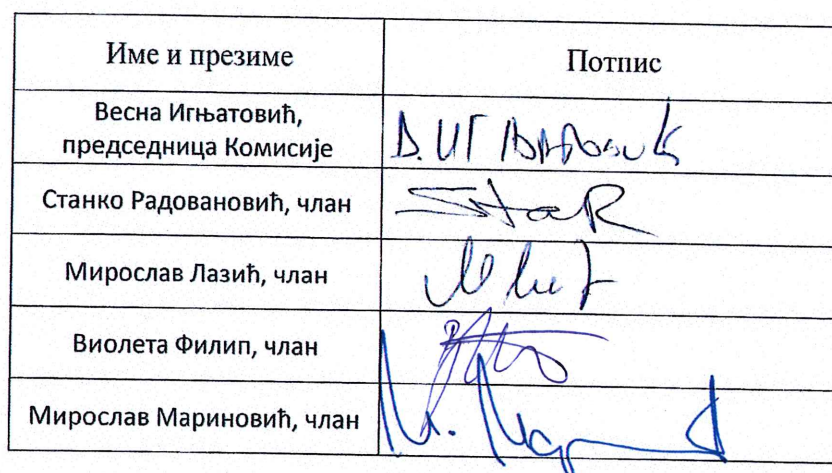 Име и презиме
Потпис
Весна Игњатовић,
председница Комисије
Станко Радовановић, члан
StaR
Мирослав Лазић, члан
Виолета Филип, члан
Мирослав Мариновић, члан